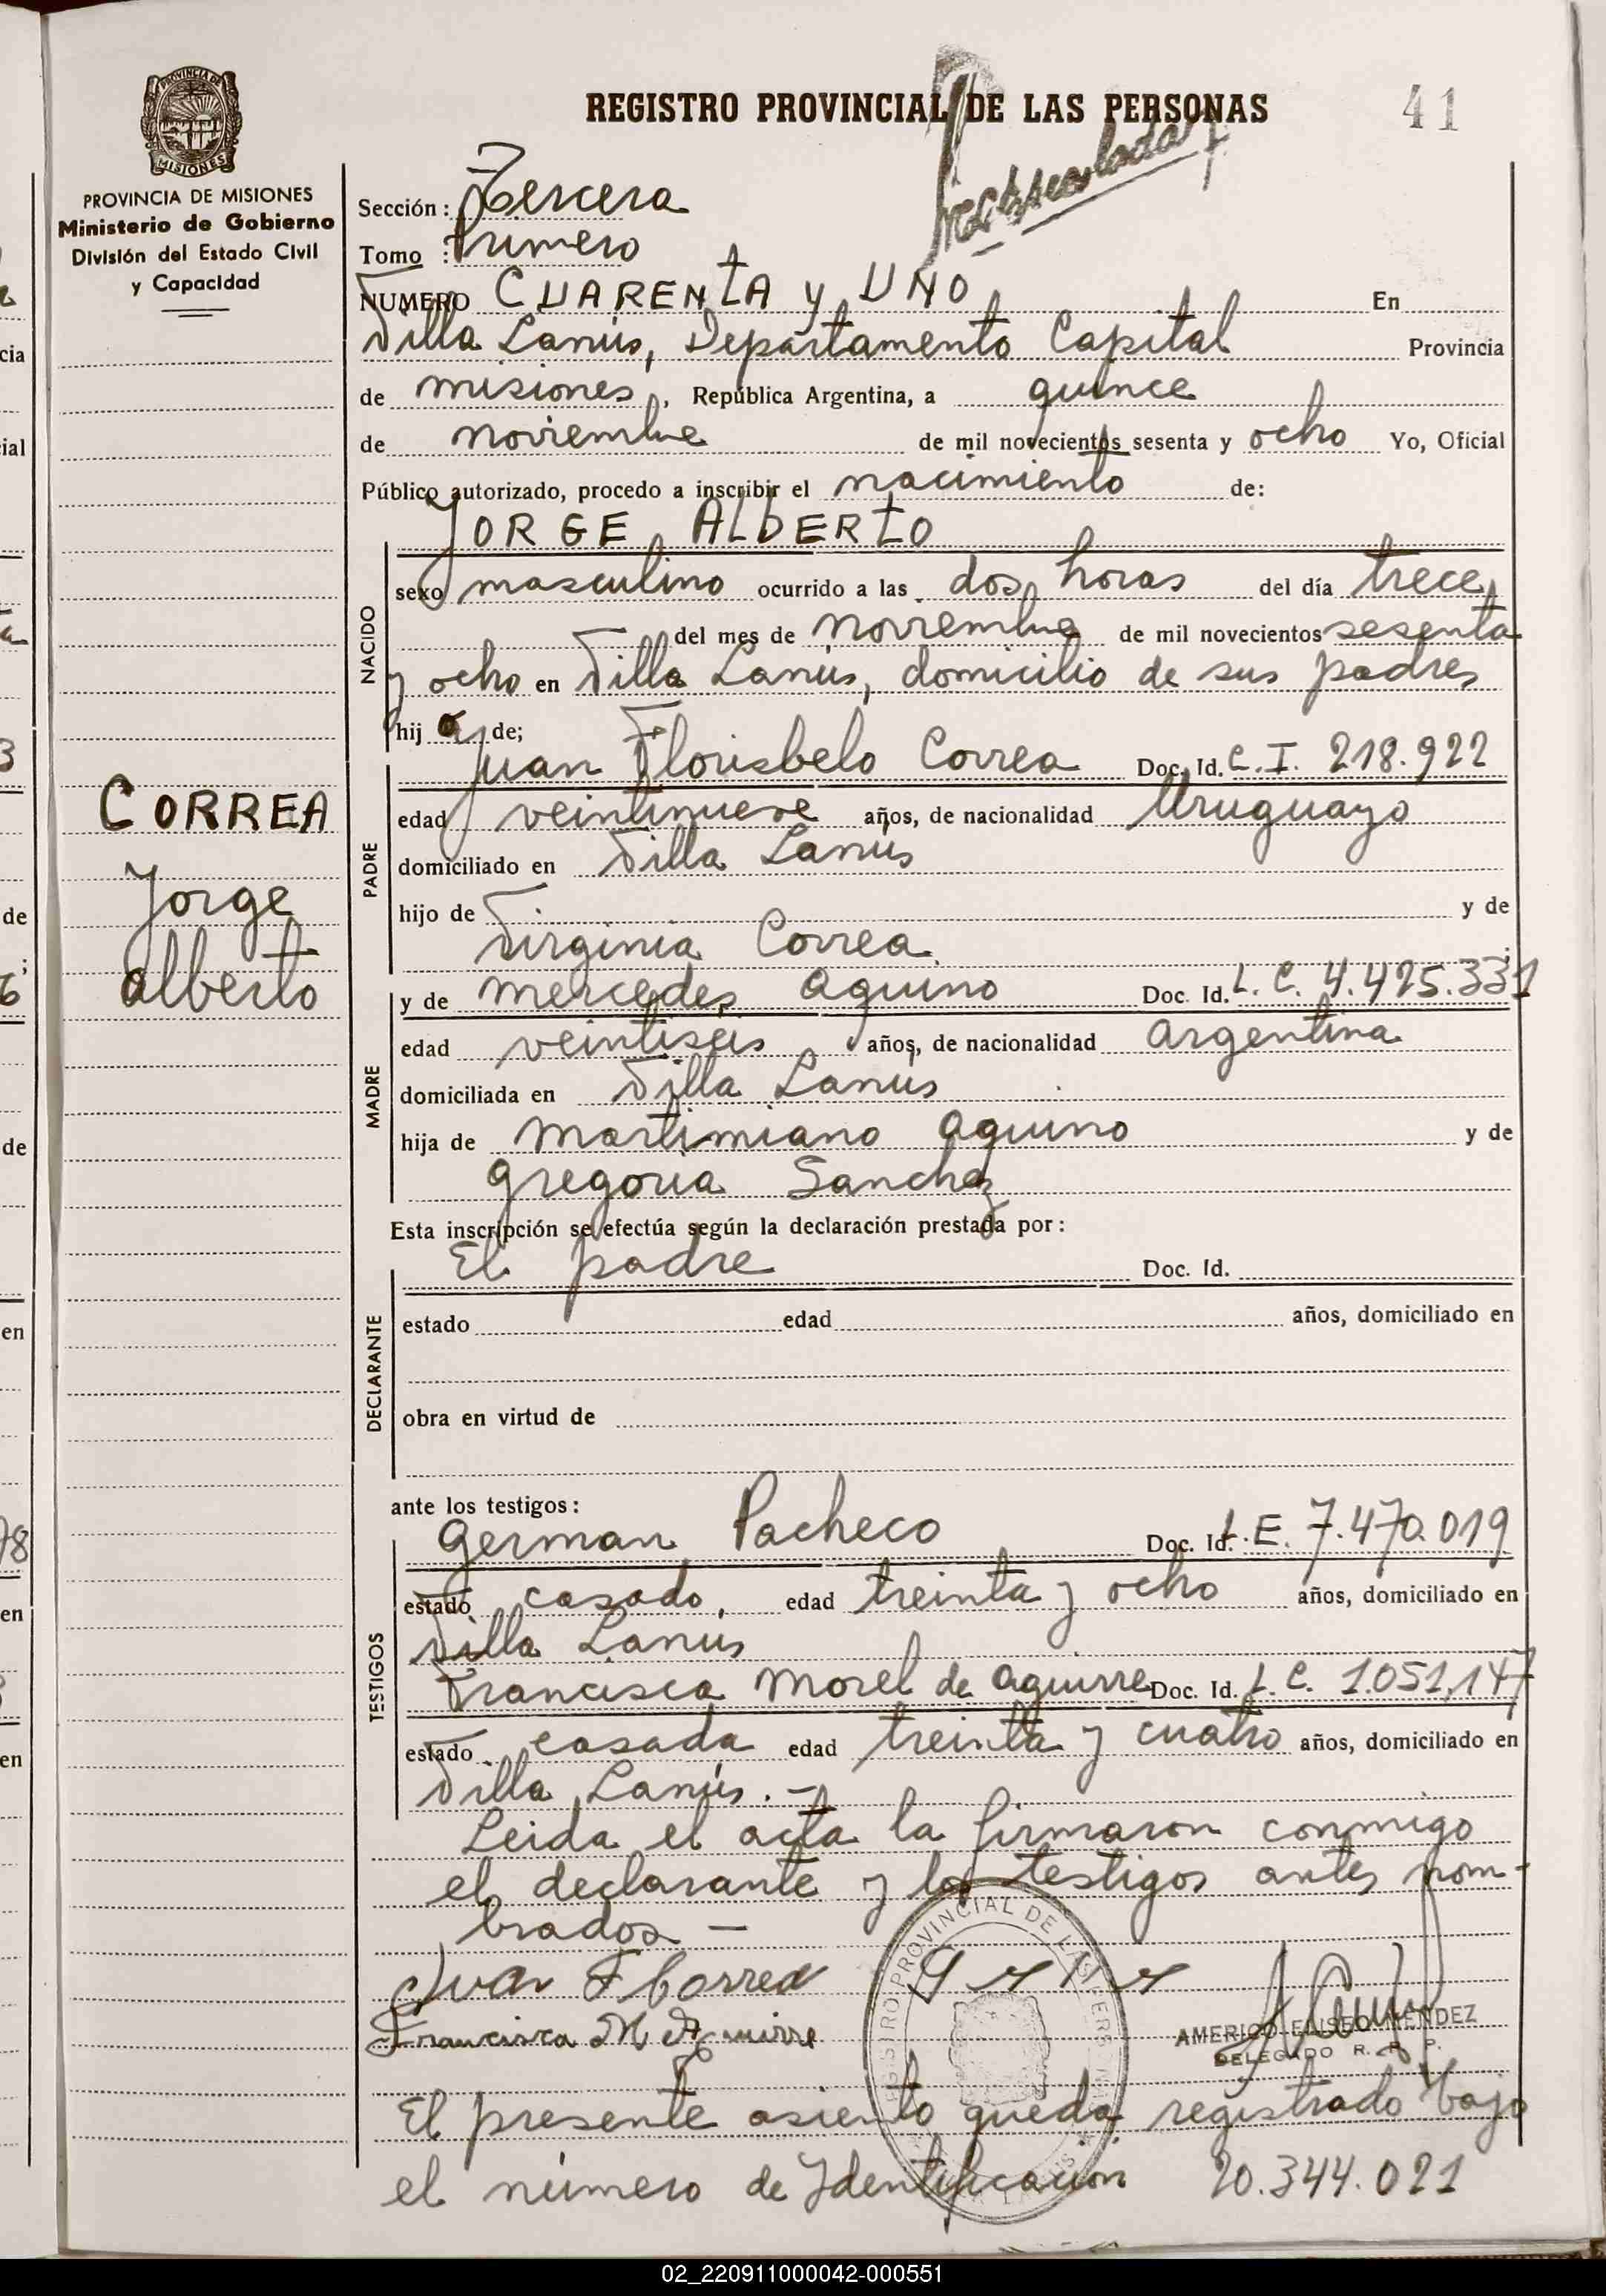 REGISTRO PROVINCIAL DE LAS PERSONAS
41
PROVINCIA DE
MISIONES
PROVINCIA DE MISIONES
Ministerio de Gobierno
División del Estado Civil
y Capacidad
Matriculado
Sección: Tercera
Tomo : Primero
NUMERO CUARENTA y UNO En
Villa Lanús, Departamento Capital Provincia
de misiones, República Argentina, a quince
de noviembre de mil novecientos sesenta y ocho Yo, Oficial
Público autorizado, procedo a inscribir el nacimiento de:
JORGE ALBERTO
NACIDO
sexo masculino ocurrido a las dos horas del día trece
del mes de noviembre de mil novecientos sesenta
y ocho en Villa Lanús, domicilio de sus padres
hijo de;
Juan Florisbelo Correa Doc. Id. C. I. 218.922
CORREA
Jorge
alberto
PADRE
edad veintinueve años, de nacionalidad Uruguayo
domiciliado en Villa Lanús
hijo de y de
Virginia Correa
y de mercedes aquino Doc. Id. L. C. 4.425.331
MADRE
edad veintiseis años, de nacionalidad argentina
domiciliada en Villa Lanús
hija de martimiano aquino y de
gregoria Sanchez
Esta inscripción se efectúa según la declaración prestada por:
El padre Doc. Id.
DECLARANTE
estado edad años, domiciliado en
obra en virtud de
ante los testigos:
german Pacheco Doc. Id. L. E. 7.470.019
TESTIGOS
estado casado, edad treinta y ocho años, domiciliado en
Villa Lanus
Francisca Morel de aguirre Doc. Id. L. C. 1.051.147
estado casada edad treinta y cuatro años, domiciliado en
Villa Lanús. -
Leida el acta la firmaron conmigo
el declarante y los testigos antes nom-
brados -
Juan F Correa
Francisca M de Aguirre
REGISTRO PROVINCIAL DE LAS PERSONAS
AMERICO ELISEO MENDEZ
DELEGADO R. P. P.
El presente asiento queda registrado bajo
el número de Identificación 20.344.021
02_220911000042-000551